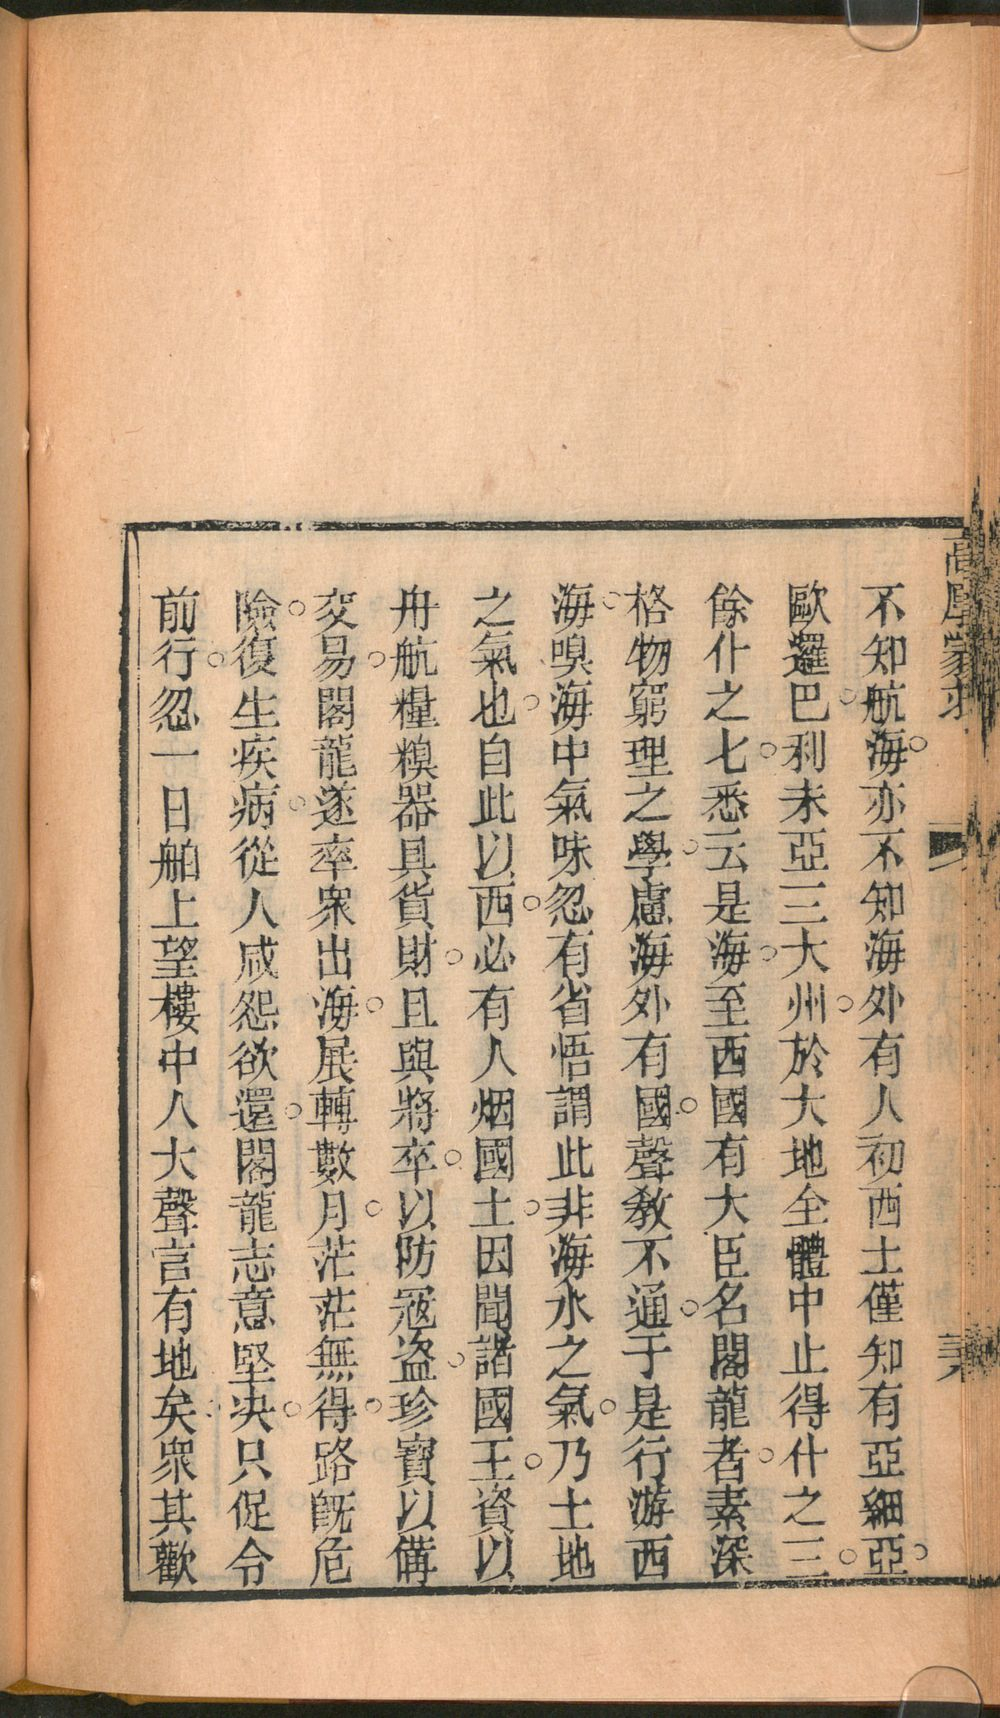 高厚蒙求
不知航海亦不知海外有人初西土僅知有亞細亞
歐邏巴利未亞三大州於大地全體中止得什之三
餘什之七悉云是海至西國有大臣名閣龍者素深
格物窮理之學慮海外有國聲教不通于是行游西
海嗅海中氣味忽有省悟謂此非海水之氣乃土地
之氣也自此以西必有人烟國土因聞諸國王資以
舟航糧糗器具貨財且與將卒以防冦盜珍寶以備
交易閣龍遂率衆出海展轉數月茫茫無得路旣危
險復生疾病從人咸怨欲還閣龍志意堅决只促令
前行忽一日舶上望樓中人大聲言有地矣衆其歡